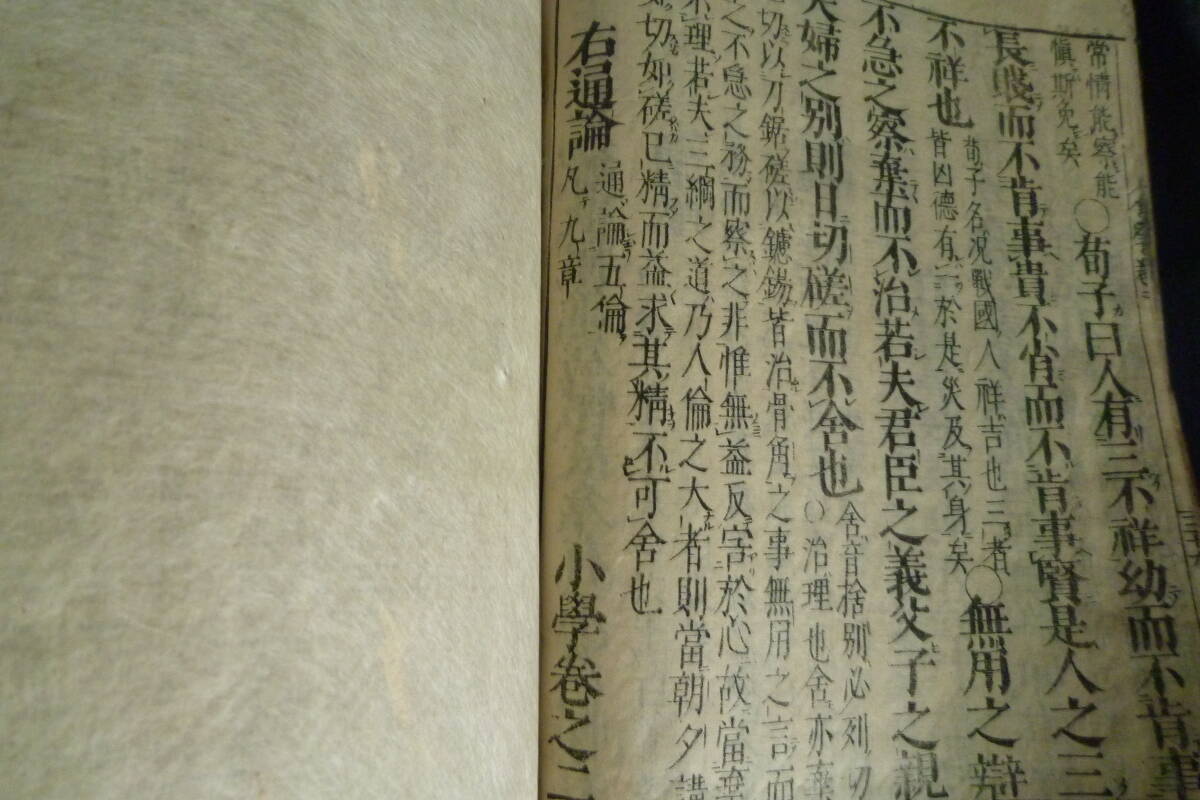 常情能察能
慎斯免矣
○荀子曰人有三不祥幼而不肯事
長賤而不肯事貴不肖而不肯事賢是人之三
不祥也
荀子名况戰國人祥吉也三者
皆凶德有一於是災及其身矣
○無用之辯
不急之察棄而不治若夫君臣之義父子之親
夫婦之別則日切磋而不舍也
舍音捨別必列切
○治理也舍亦棄
切以刀鋸磋以鑢鐋皆治骨角之事無用之言而
之不急之務而察之非惟無益反害於心故當棄
不理若夫三綱之道乃人倫之大者則當朝夕講
切如磋已精而益求其精不可舍也
右通論
通論五倫
凡九章
小學卷之二